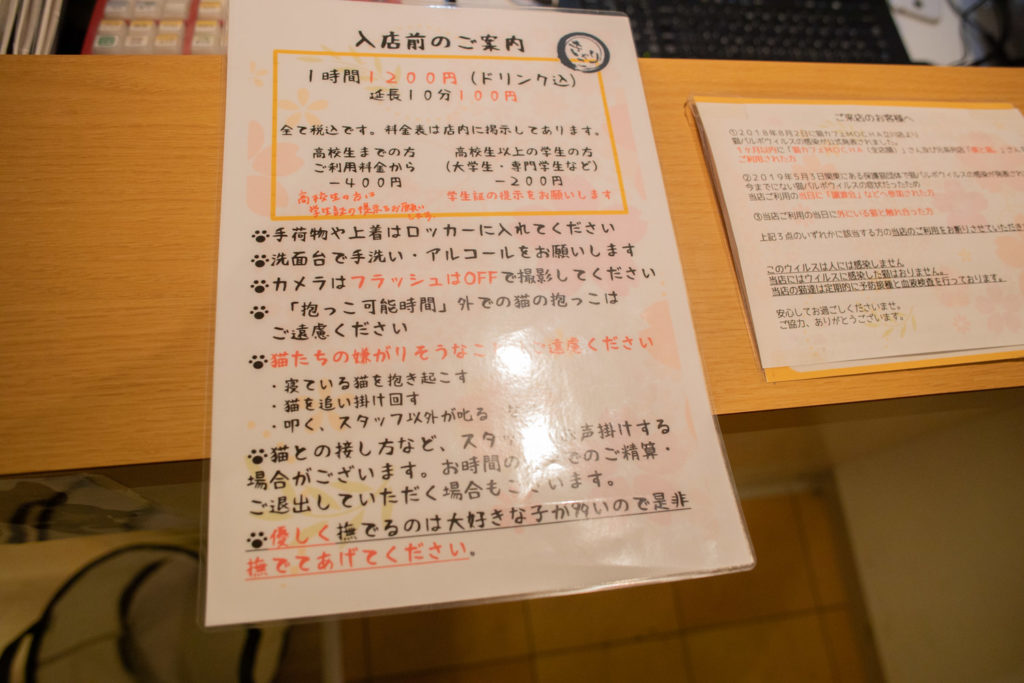 入店前のご案内
1時間1200円(ドリンク込)
延長10分100円
全て税込です。料金表は店内に掲示してあります。
高校生までの方
ご利用料金から
－400円
高校生の方は
学生証の提示をお願いします
高校生以上の学生の方
(大学生・専門学生など)
－200円
学生証の提示をお願いします
手荷物や上着はロッカーに入れてください
洗面台で手洗い・アルコールをお願いします
カメラはフラッシュはOFFで撮影してください
「抱っこ可能時間」外での猫の抱っこは
ご遠慮ください
猫たちの嫌がりそうなこ ご遠慮ください
・寝ている猫を抱き起こす
・猫を追い掛け回す
・叩く、スタッフ以外が叱る
猫との接し方など、スタッ 声掛けする
場合がございます。お時間の でのご精算・
ご退出していただく場合もございます。
優しく撫でるのは大好きな子が多いので是非
撫でてあげてください。
ご来店のお客様へ
①2018年8月2日に猫カフェMOCHA立川店より
猫パルボウイルスの感染が公式発表されました。
1ヶ月以内に「猫カフェMOCHA(全店舗)」さん及び
ご利用された方
②2019年5月3日関東にある保護猫団体で猫パルボウイルスの感染が発表され
今までにない猫パルボウイルスの症状だったため
当店ご利用の当日に「譲渡会」などへ参加された方
③当店ご利用の当日に外にいる猫と触れ合った方
上記3点のいずれかに該当する方の当店のご利用をお断りさせていただき
このウイルスは人には感染しません
当店にはウイルスに感染した猫はおりません。
当店の猫達は定期的に予防接種と血液検査を行っております。
安心してお過ごしくださいませ。
ご協力、ありがとうございます。